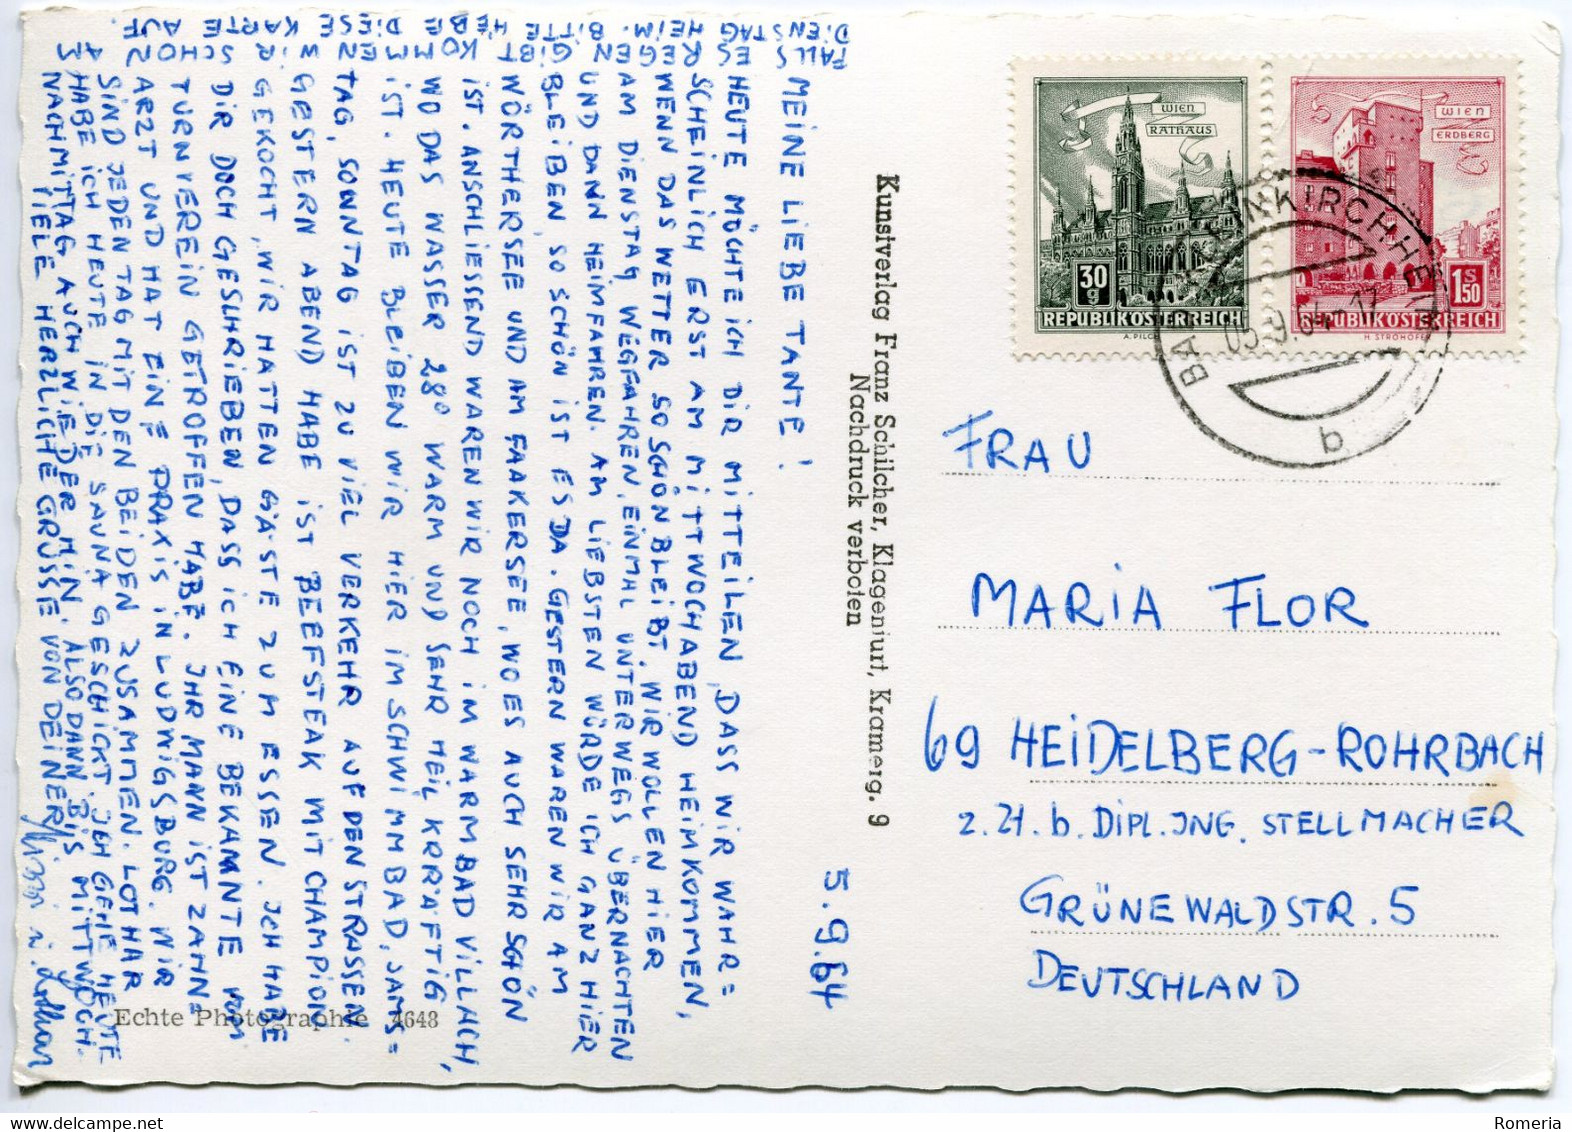 5.9.64
MEINE LIEBE TANTE!
HEUTE MÖCHTE ICH DIR MITTEILEN, DASS WIR WAHR=
SCHEINLICH ERST AM MITTWOCHABEND HEIMKOMMEN,
WENN DAS WETTER SO SCHÖN BLEIBT. WIR WOLLEN HIER
AM DIENSTAG WEGFAHREN, EINMAL UNTERWEGS ÜBERNACHTEN
UND DANN HEIMFAHREN. AM LIEBSTEN WÜRDE ICH GANZ HIER
BLEIBEN, SO SCHÖN IST ES DA. GESTERN WAREN WIR AM
WÖRTHERSEE UND AM FAAKERSEE, WO ES AUCH SEHR SCHÖN
IST. ANSCHLIESSEND WAREN WIR NOCH IM WARMBAD VILLACH,
WO DAS WASSER 28° WARM UND SEHR HEILKRÄFTIG
IST. HEUTE BLEIBEN WIR HIER IM SCHWIMMBAD, SAMS=
TAG, SONNTAG IST ZU VIEL VERKEHR AUF DEN STRASSEN.
GESTERN ABEND HABE IST BEEFSTEAK MIT CHAMPION
GEKOCHT, WIR HATTEN GÄSTE ZUM ESSEN. ICH HABE
DIR DOCH GESCHRIEBEN, DASS ICH EINE BEKANNTE VOM
TURNVEREIN GETROFFEN HABE. IHR MANN IST ZAHN=
ARZT UND HAT EINE PRAXIS IN LUDWIGSBURG. WIR
SIND JEDEN TAG MIT DEN BEIDEN ZUSAMMEN. LOTHAR
HABE ICH HEUTE IN DIE SAUNA GESCHICKT. ICH GEHE HEUTE
NACHMITTAG AUCH WIEDER HIN. ALSO DANN BIS MITTWOCH.
VIELE HERZLICHE GRÜSSE VON DEINER
u. Lothar
FALLS ES REGEN GIBT KOMMEN WIR SCHON AM
DIENSTAG HEIM. BITTE HEBE DIESE KARTE AUF
Kunstverlag Franz Schilcher, Klagenfurt, Kramerg. 9
Nachdruck verboten
Echte Photographie 4648
WIEN
RATHAUS
30
g
REPUBLIK ÖSTERREICH
WIEN
ERDBERG
S
1.50
REPUBLIK ÖSTERREICH
H. STROHOFER
BAD KLEINKIRCHHEIM
05.9.64-17
b
FRAU
MARIA FLOR
69 HEIDELBERG-ROHRBACH
z.Zt. b. DIPL. ING. STELLMACHER
GRÜNEWALDSTR. 5
DEUTSCHLAND
Romeria